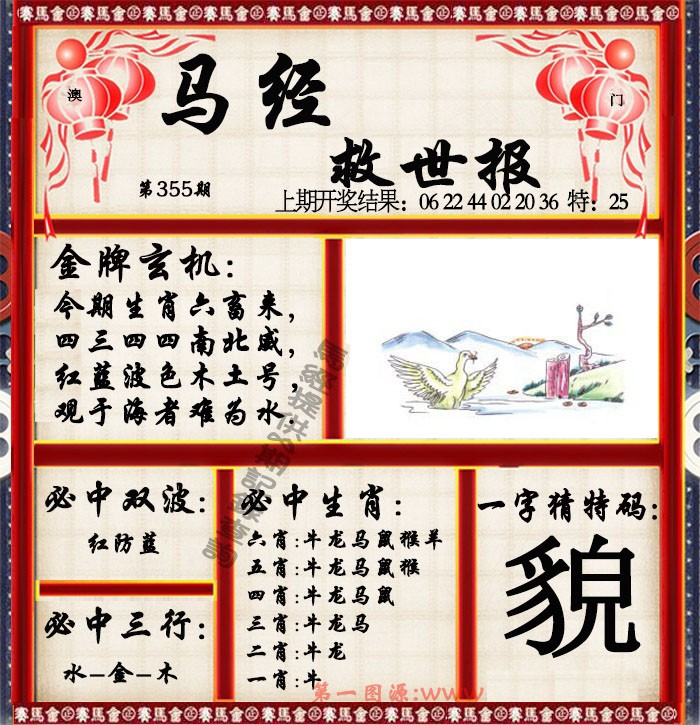 澳
门
马经
救世报
第355期
上期开奖结果：06 22 44 02 20 36 特：25
金牌玄机：
今期生肖六畜来，
四三四四南北威，
红蓝波色木土号，
观于海者难为水.
必中双波：
红防蓝
必中三行：
水-金-木
必中生肖：
六肖:牛龙马鼠猴羊
五肖:牛龙马鼠猴
四肖:牛龙马鼠
三肖:牛龙马
二肖:牛龙
一肖:牛
一字猜特码：
貌
第一图源:www